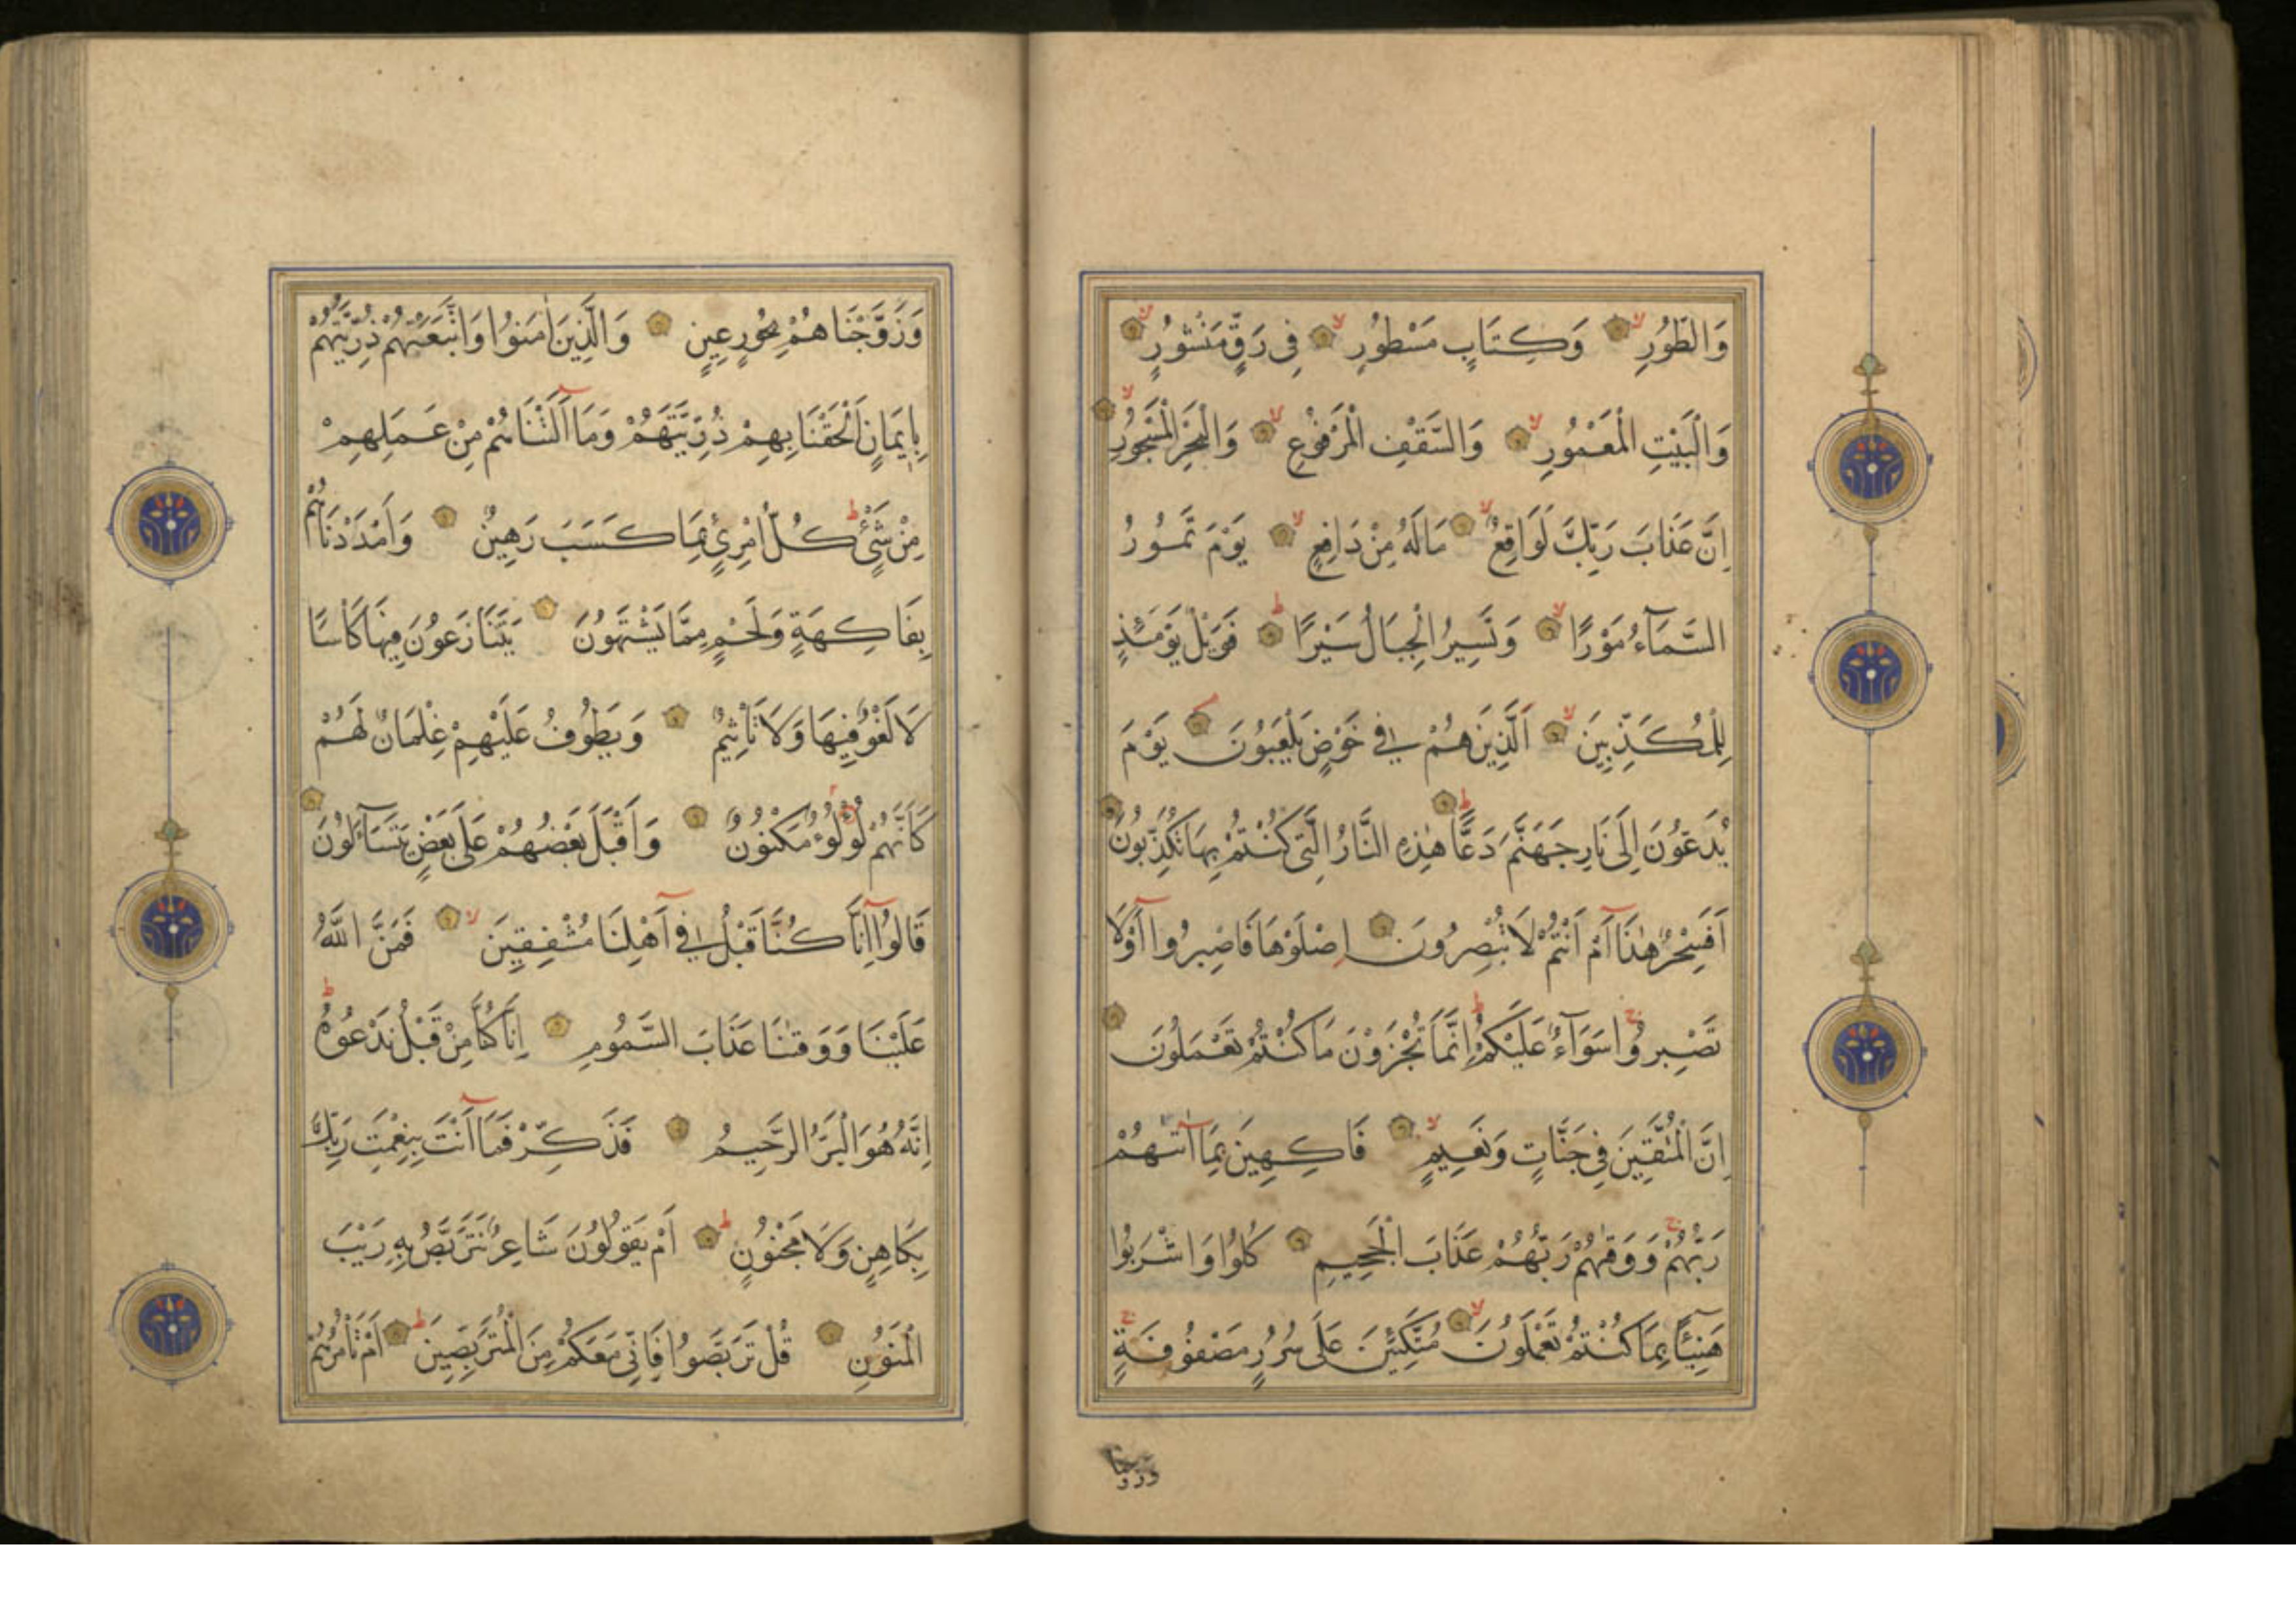 وَالطُّورِ وَكِتَابٍ مَسْطُورٍ فِى رَقٍّ مَنْشُورٍ
وَالْبَيْتِ الْمَعْمُورِ وَالسَّقْفِ الْمَرْفُوعِ وَالْبَحْرِ الْمَسْجُورِ
اِنَّ عَذَابَ رَبِّكَ لَوَاقِعٌ مَالَهُ مِنْ دَافِعٍ يَوْمَ تَمُورُ
السَّمَآءُ مَوْرًا وَتَسِيرُ الْجِبَالُ سَيْرًا فَوَيْلٌ يَوْمَئِذٍ
لِلْمُكَذِّبِينَ اَلَّذِينَ هُمْ فِى خَوْضٍ يَلْعَبُونَ يَوْمَ
يُدَعُّونَ اِلَى نَارِ جَهَنَّمَ دَعًّا هٰذِهِ النَّارُ الَّتِى كُنْتُمْ بِهَا تُكَذِّبُونَ
اَفَسِحْرٌ هٰذَا اَمْ اَنْتُمْ لَا تُبْصِرُونَ اِصْلَوْهَا فَاصْبِرُوا اَوْلَا
تَصْبِرُوا سَوَآءٌ عَلَيْكُمْ اِنَّمَا تُجْزَوْنَ مَا كُنْتُمْ تَعْمَلُونَ
اِنَّ الْمُتَّقِينَ فِى جَنَّاتٍ وَنَعِيمٍ فَاكِهِينَ بِمَا اٰتٰيهُمْ
رَبُّهُمْ وَوَقٰيهُمْ رَبُّهُمْ عَذَابَ الْجَحِيمِ كُلُوا وَاشْرَبُوا
هَنِيئًا بِمَا كُنْتُمْ تَعْمَلُونَ مُتَّكِئِينَ عَلَى سُرُرٍ مَصْفُوفَةٍ
وزوجنا
وَزَوَّجْنَاهُمْ بِحُورٍ عِينٍ وَالَّذِينَ اٰمَنُوا وَاتَّبَعَتْهُمْ ذُرِّيَّتُهُمْ
بِاِيمَانٍ اَلْحَقْنَا بِهِمْ ذُرِّيَّتَهُمْ وَمَا اَلَتْنَاهُمْ مِنْ عَمَلِهِمْ
مِنْ شَىْءٍ كُلُّ امْرِئٍ بِمَا كَسَبَ رَهِينٌ وَاَمْدَدْنَاهُمْ
بِفَاكِهَةٍ وَلَحْمٍ مِمَّا يَشْتَهُونَ يَتَنَازَعُونَ فِيهَا كَأْسًا
لَا لَغْوٌ فِيهَا وَلَا تَأْثِيمٌ وَيَطُوفُ عَلَيْهِمْ غِلْمَانٌ لَهُمْ
كَاَنَّهُمْ لُؤْلُؤٌ مَكْنُونٌ وَاَقْبَلَ بَعْضُهُمْ عَلَى بَعْضٍ يَتَسَآءَلُونَ
قَالُوا اِنَّا كُنَّا قَبْلُ فِى اَهْلِنَا مُشْفِقِينَ فَمَنَّ اللّٰهُ
عَلَيْنَا وَوَقٰينَا عَذَابَ السَّمُومِ اِنَّا كُنَّا مِنْ قَبْلُ نَدْعُوهُ
اِنَّهُ هُوَ الْبَرُّ الرَّحِيمُ فَذَكِّرْ فَمَا اَنْتَ بِنِعْمَتِ رَبِّكَ
بِكَاهِنٍ وَلَا مَجْنُونٍ اَمْ يَقُولُونَ شَاعِرٌ نَتَرَبَّصُ بِهِ رَيْبَ
الْمَنُونِ قُلْ تَرَبَّصُوا فَاِنِّى مَعَكُمْ مِنَ الْمُتَرَبِّصِينَ اَمْ تَأْمُرُهُمْ